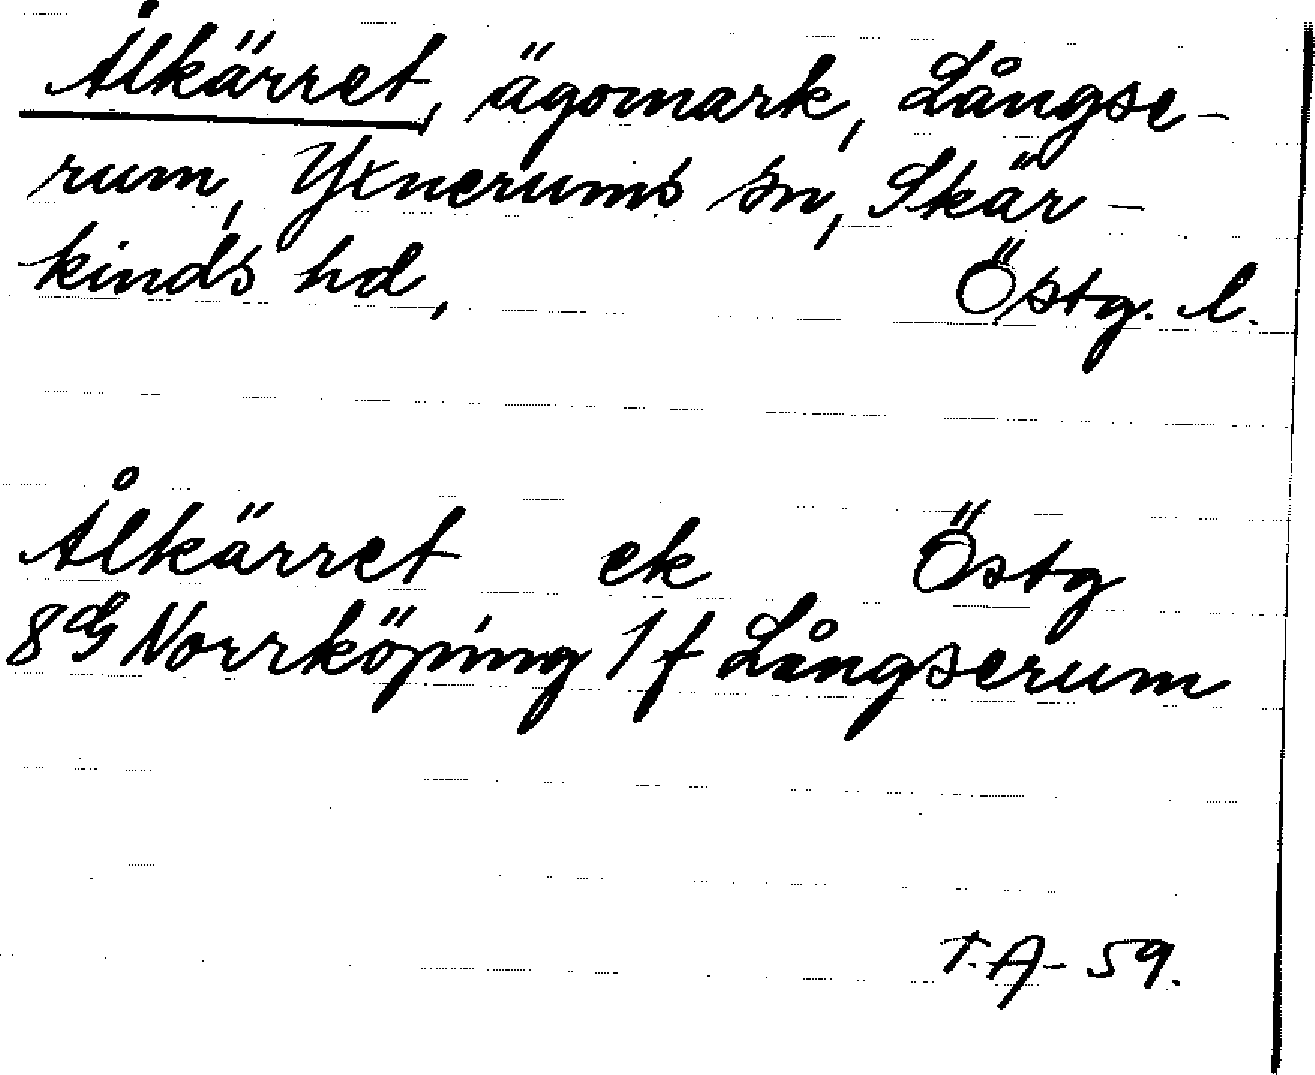 Ålkärret, ägomark, Långse-
rum, Yxnerums sn, Skär-
kinds hd, Östg. l.
Ålkärret ek Östg
8G Norrköping 1f Långserum
T.A- 59.